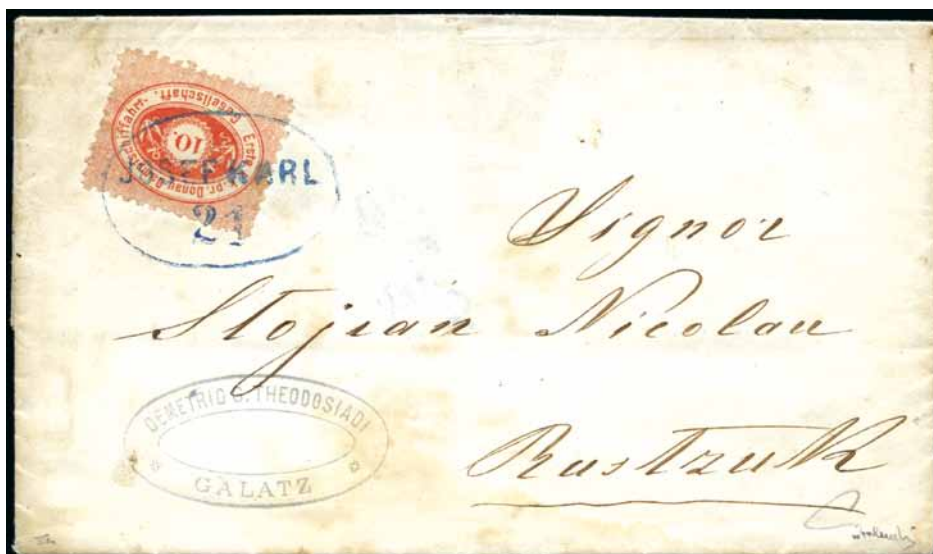 Erste k. k. pr. Donau Dampfschiffahrt-Gesellschaft.
10.
JOSEF KARL
21
Signor
Stojián Nicolau
DEMETRIO G. THEODOSIADI
GALATZ
Rustzuk